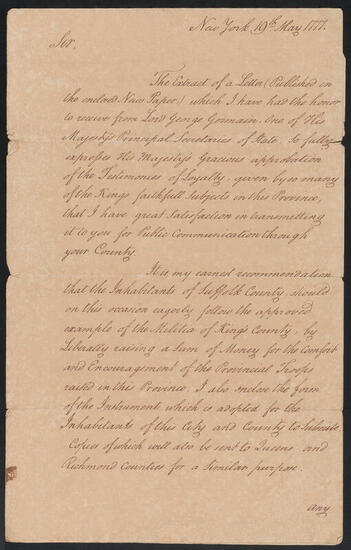 New York 19th May 1777.
Sir,
The Extract of a Letter (Published in
the enclosed News Paper) which I have had the honor
to receive from Lord George Germain, One of His
Majesty's Principal Secretaries of State, So fully
expresses His Majesty's Gracious approbation
of the Testimonies of Loyalty, given by so many
of the Kings faithfull Subjects in this Province,
that I have great Satisfaction in transmitting
it to you for Public Communication through
your County.
It is my earnest recommendation
that the Inhabitants of Suffolk County, should
on this occasion eagerly follow the approved
example of the Militia of Kings County, by
Liberally raising a Sum of Money for the Comfort
and Encouragement of the Provincial Troops
raised in this Province. I also enclose the form
of the Instrument which is adopted for the
Inhabitants of this City and County to Subscribe,
Copies of which will also be sent to Queens and
Richmond Counties for a Similar purpose.
Any